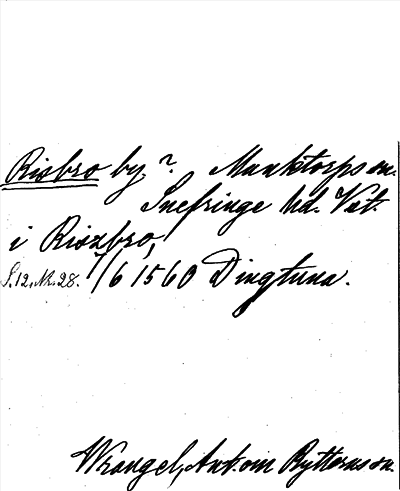 Risbro by,? Munktorps sn.
Snefringe hd. Vst.
i Riszbro,
S.12, Nr. 28. 7/6 1560 Dingtuna.
Wrangel, Ant. om Rytterns sn.